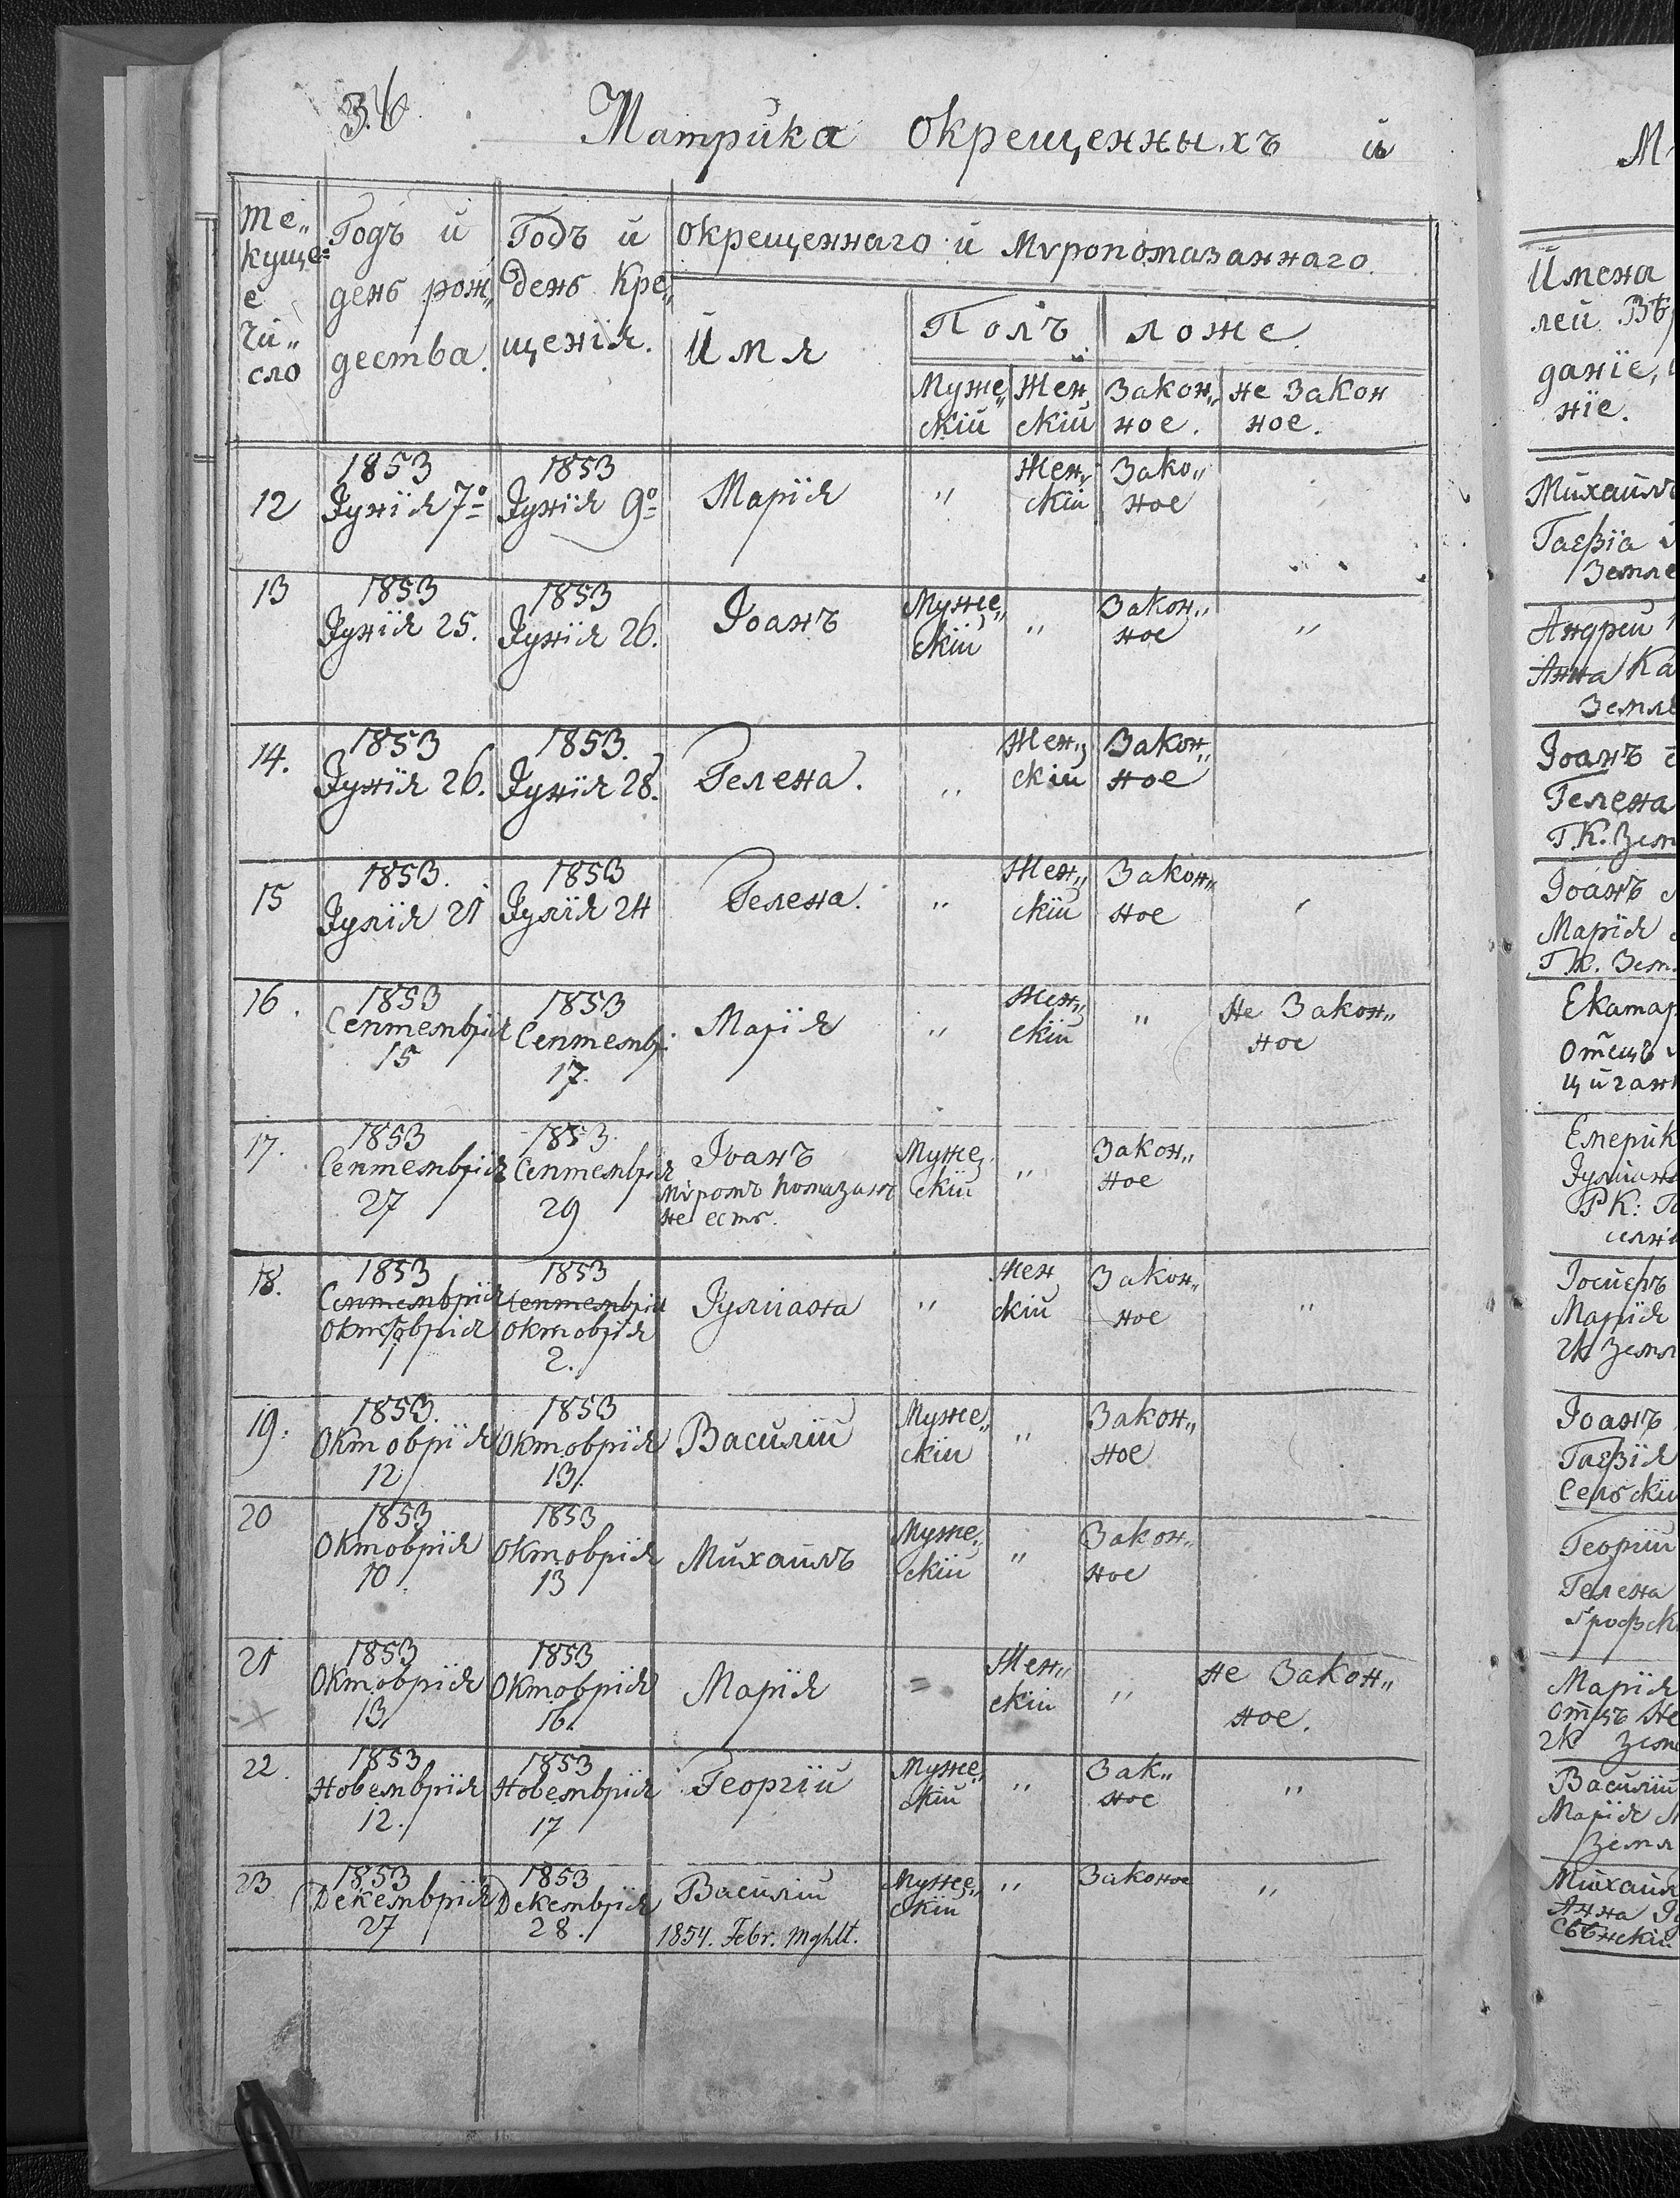 36.
Матрика окрещенныхъ и
Те„
куще=
е
чи„
сло
Годъ и
день рож„
дества.
Годъ и
день кре„
щенїя.
окрещеннаго и мѵропомазаннаго.
Имя
Полъ
ложе.
Муже„
скій
Жен„
скій
Закон„
ное.
не Закон
ное.
12
1853
Іунїя 7º
1853
Іунїя 9º
Марїя
„
Жен„
скій
Зако„
ное
13
1853
Іунїя 25.
1853
Іунїя 26.
Іоанъ
Муже„
скій
„
Закон„
ное
„
14.
1853
Іунїя 26.
1853.
Іунїя 28.
Гелена.
„
Жен„
скій
Закон„
ное
15
1853.
Іулїя 21
1853
Іулїя 24
Гелена.
„
Жен„
скїй
Закон„
ное
16.
1853
Септемврїя
15
1853
Септемвр.
17.
Марїя
„
Жен„
скїй
„
Не Закон„
ное
17.
1853
Септемврїя
27
1853.
Септемврїя
29
Іоанъ
Мѵромъ помазанъ
не есть.
Муже
скїй
„
Закон„
ное
18.
1853
Септемврїя
Октоврія
1
1853
Септемврїя
Октоврїя
2.
Іуліана
„
Жен
скїй
Закон„
ное
„
19.
1853.
Октоврїя
12
1853
Октоврїя
13.
Василій
Муже„
скїй
„
Закон„
ное
20
1853
Октоврїя
10.
1853
Октоврїя
13
Михаилъ
Муже„
скїй
„
Закон„
ное
21
1853
Октоврїя
13
1853
Октоврїя
16.
Марїя
=
Жен„
скїй
„
не Закон„
ное.
22.
1853
Новемврїя
12.
1853
Новемврїя
17
Георгїй
Муже„
скїй
„
Зак„
ное
„
23
1853
Декемврїя
27
1853
Декемврїя
28.
Василій
1854. Febr. Mghlt.
Муже„
скїй
„
Законое
„
Имена
лей
данїе,
нїе.
Михаилъ
Гавїа
Андрей
Анна
Іоанъ
Гелена
Г.К.
Іоанъ
Марїя
Г.К.
Отецъ
Р.К:
Марїя
Іоанъ
Георгій
Гелена
Марїя
Василій
Марїя
Михаил
Анна